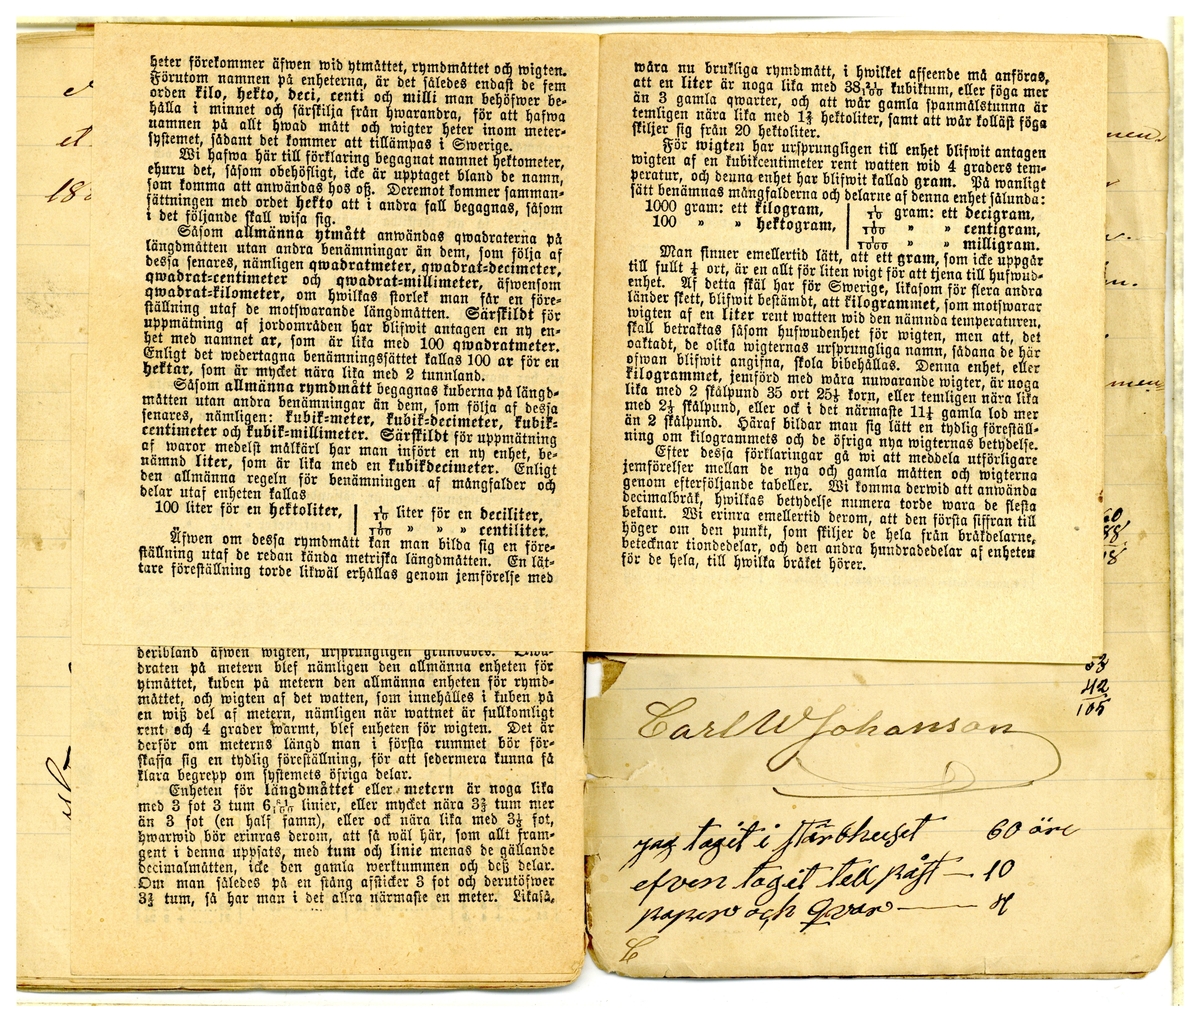 heter förekommer äfwen wid ytmåttet, rymdmåttet och wigten.
Förutom namnen på enheterna, är det således endast de fem
orden kilo, hekto, deci, centi och milli man behöfwer be-
hålla i minnet och särskilja från hwarandra, för att hafwa
namnen på allt hwad mått och wigter heter inom meter-
systemet, sådant det kommer att tillämpas i Swerige.
Wi hafwa här till förklaring begagnat namnet hektometer,
ehuru det, såsom obehöfligt, icke är upptaget bland de namn,
som komma att användas hos oß. Deremot kommer samman-
sättningen med ordet hekto att i andra fall begagnas, såsom
i det följande skall wisa sig.
Såsom allmänna ytmått anwändas qwadraterna på
längdmåtten utan andra benämningar än dem, som följa af
dessa senares, nämligen qwadratmeter, qwadrat-decimeter,
qwadrat-centimeter och qwadrat-millimeter, äfwensom
qwadrat-kilometer, om hwilkas storlek man får en före-
ställning utaf de motswarande längdmåtten. Särskildt för
uppmätning af jordområden har blifwit antagen en ny en-
het med namnet ar, som är lika med 100 qwadratmeter.
Enligt det wedertagna benämningssättet kallas 100 ar för en
hektar, som är mycket nära lika med 2 tunnland.
Såsom allmänna rymdmått begagnas kuberna på längd-
måtten utan andra benämningar än dem, som följa af dessa
senares, nämligen: kubik-meter, kubik-decimeter, kubik-
centimeter och kubik-millimeter. Särskildt för uppmätning
af waror medelst målkärl har man infört en ny enhet, be-
nämnd liter, som är lika med en kubikdecimeter. Enligt
den allmänna regeln för benämningen af mångfalder och
delar utaf enheten kallas
100 liter för en hektoliter, 1/10 liter för en deciliter,
1/100 " " " centiliter.
Äfwen om dessa rymdmått kan man bilda sig en före-
ställning utaf de redan kända metriska längdmåtten. En lät-
tare föreställning torde likwäl erhållas genom jemförelse med
deribland äfwen wigten, ursprungligen grundades.
draten på metern blef nämligen den allmänna enheten för
ytmåttet, kuben på metern den allmänna enheten för rymd-
måttet, och wigten af det watten, som innehålles i kuben på
en wiß del af metern, nämligen när wattnet är fullkomligt
rent och 4 grader warmt, blef enheten för wigten. Det är
derför om meterns längd man i första rummet bör för-
skaffa sig en tydlig föreställning, för att sedermera kunna få
klara begrepp om systemets öfriga delar.
Enheten för längdmåttet eller metern är noga lika
med 3 fot 3 tum linier, eller mycket nära 3⅔ tum mer
än 3 fot (en half famn), eller ock nära lika med 3⅓ fot,
hwarwid bör erinras derom, att så wäl här, som allt fram-
gent i denna uppsats, med tum och linie menas de gällande
decimalmåtten, icke den gamla werktummen och deß delar.
Om man således på en stång afsticker 3 fot och derutöfwer
3⅔ tum, så har man i det allra närmaste en meter. Likaså,
wåra nu brukliga rymdmått, i hwilket afseende må anföras,
att en liter är noga lika med kubiktum, eller föga mer
än 3 gamla qwarter, och att wår gamla spanmålstunna är
temligen nära lika med hektoliter, samt att wår kolläst föga
skiljer sig från 20 hektoliter.
För wigten har ursprungligen till enhet blifwit antagen
wigten af en kubikcentimeter rent watten wid 4 graders tem-
peratur, och denna enhet har blifwit kallad gram. På wanligt
sätt benämnas mångfalderna och delarne af denna enhet sålunda:
1000 gram: ett kilogram, 1/10 gram: ett decigram,
100 " " hektogram, 1/100 " " centigram,
1/1000 " " milligram.
Man finner emellertid lätt, att ett gram, som icke uppgår
till fullt ¼ ort, är en allt för liten wigt för att tjena till hufwud-
enhet. Af detta skäl har för Swerige, likasom för flera andra
länder skett, blifwit bestämdt, att kilogrammet, som motswarar
wigten af en liter rent watten wid den nämnda temperaturen,
skall betraktas såsom hufwudenhet för wigten, men att, det
oaktadt, de olika wigternas ursprungliga namn, sådana de här
ofwan blifwit angifna, skola bibehållas. Denna enhet, eller
kilogrammet, jemförd med wåra nuwarande wigter, är noga
lika med 2 skålpund 35 ort 25⅓ korn, eller temligen nära lika
med 2⅓ skålpund, eller ock i det närmaste 11¼ gamla lod mer
än 2 skålpund. Häraf bildar man sig lätt en tydlig föreställ-
ning om kilogrammets och de öfriga nya wigternas betydelse.
Efter dessa förklaringar gå wi att meddela utförligare
jemförelser mellan de nya och gamla måtten och wigterna
genom efterföljande tabeller. Wi komma derwid att anwända
decimalbråk, hwilkas betydelse numera torde wara de flesta
bekant. Wi erinra emellertid derom, att den första siffran till
höger om den punkt, som skiljer de hela från bråkdelarne,
betecknar tiondedelar, och den andra hundradedelar af enheten
för de hela, till hwilka bråket hörer.
42
105
Carl W Johanson
jag tagit i stärbhuset 60 öre
efven tagit tell påst — 10
paper och qvar —